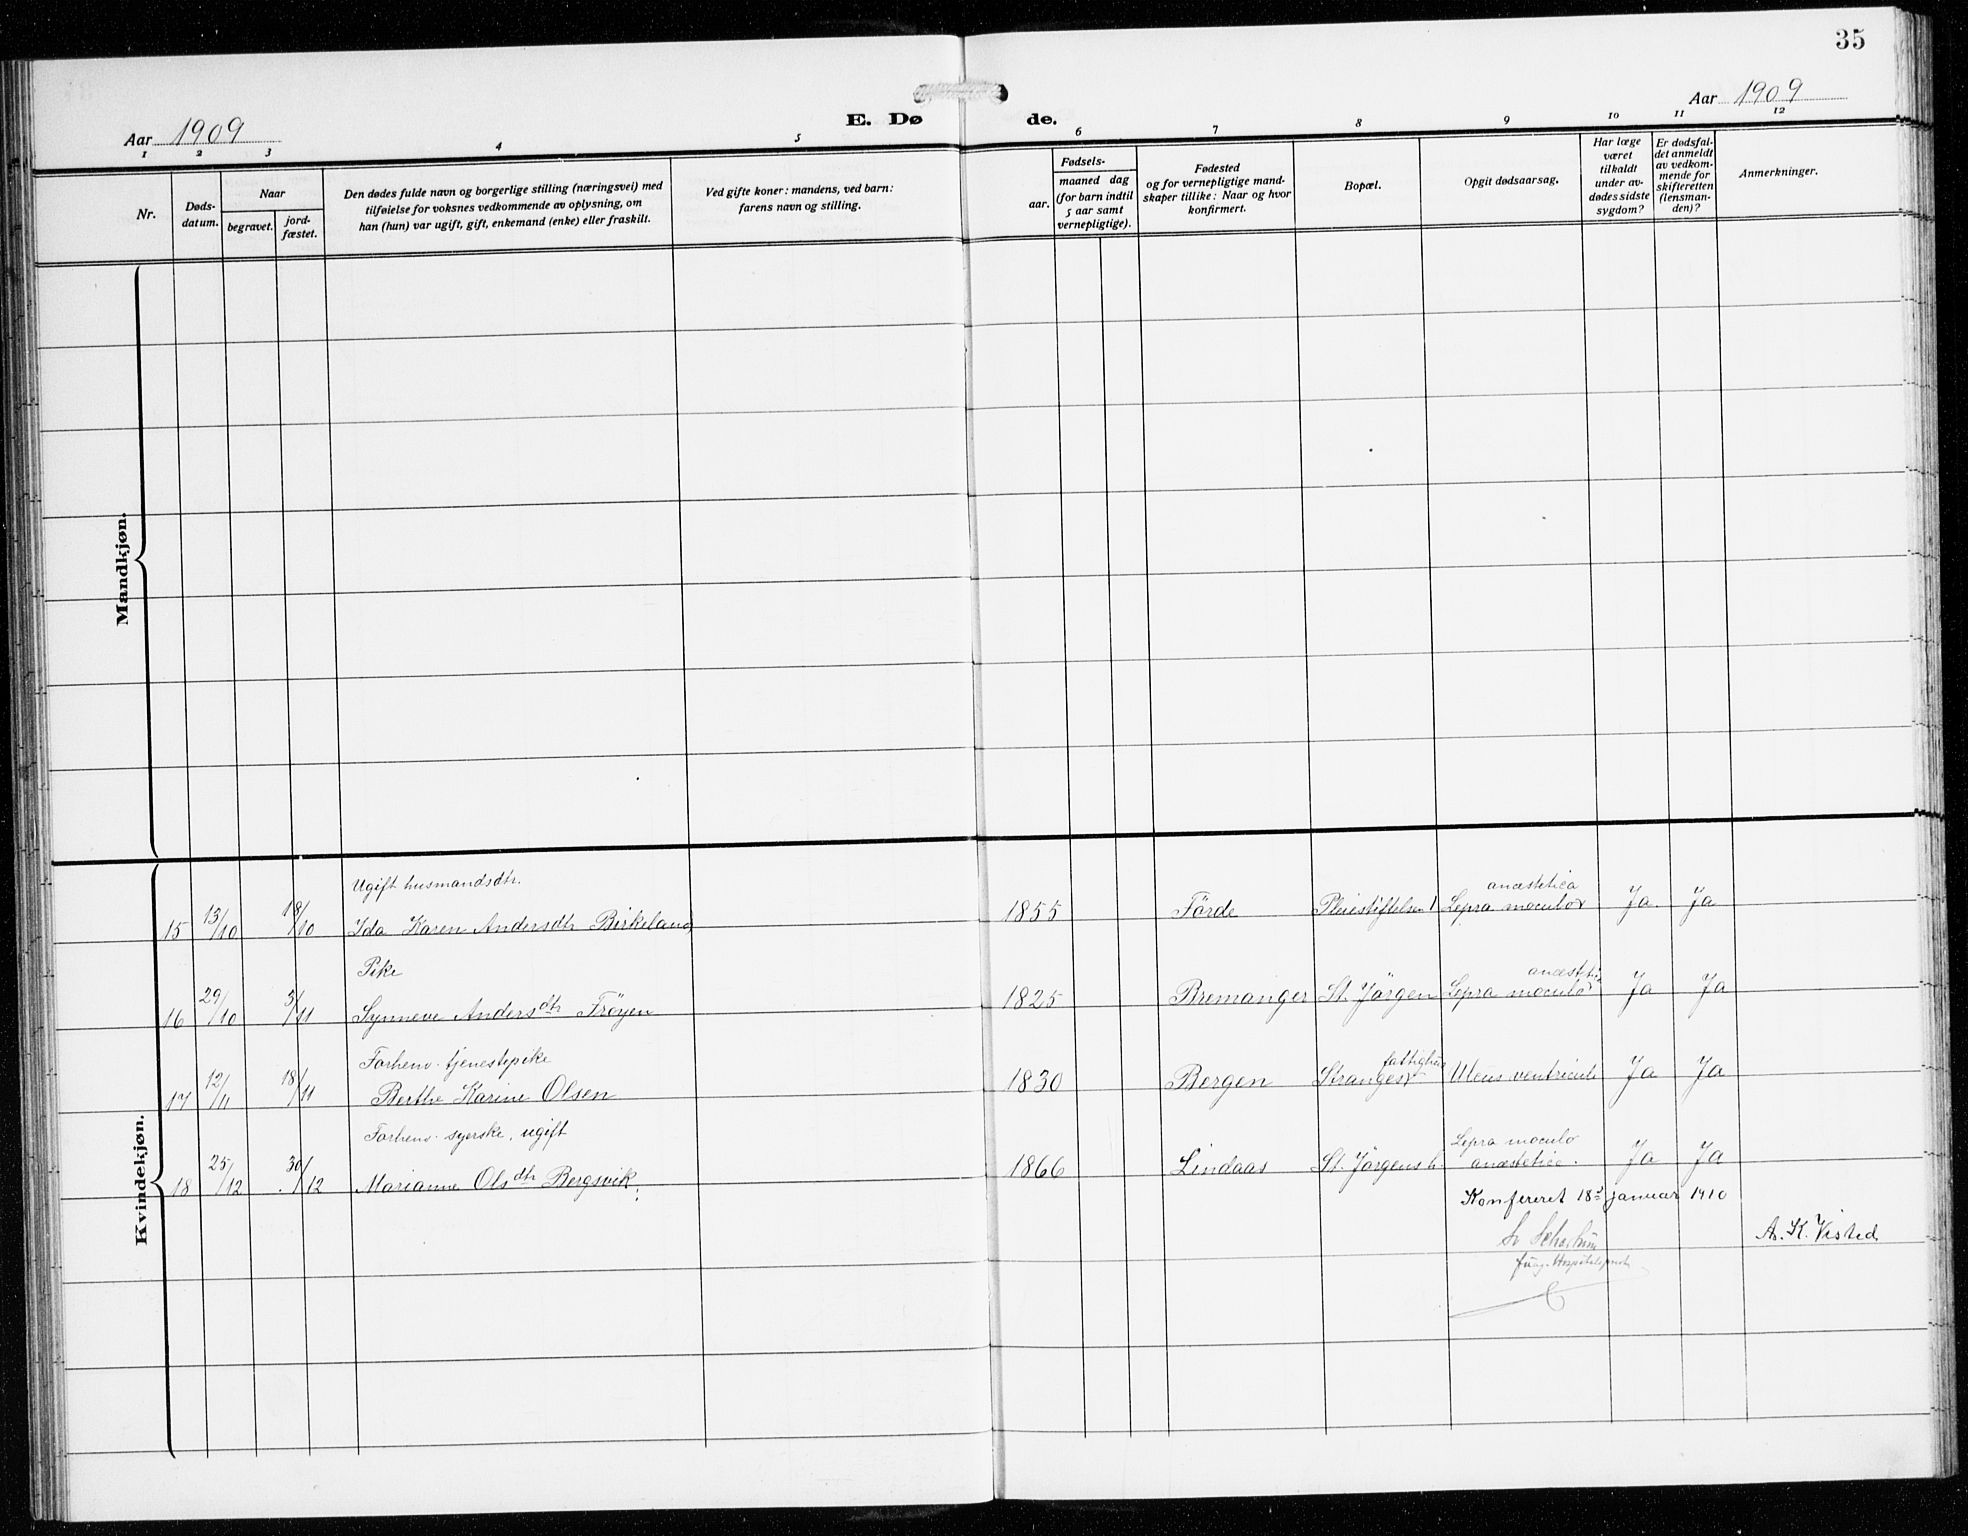 35
Aar 1909
E. Døde.
Aar 1909
1 2 3 4 5 6 7 8 9 10 11 12
Nr.
Døds-
datum.
Naar
begravet.
jord-
fæstet.
Den dødes fulde navn og borgerlige stilling (næringsvei) med
tilføielse for voksnes vedkommende av oplysning, om
han (hun) var ugift, gift, enkemand (enke) eller fraskilt.
Ved gifte koner: mandens, ved barn:
farens navn og stilling.
Fødsels-
aar.
maaned dag
(for barn indtil
5 aar samt
vernepligtige).
Fødested
og for vernepligtige mand-
skaper tillike: Naar og hvor
konfirmert.
Bopæl.
Opgit dødsaarsag.
Har læge
været
tilkaldt
under av-
dødes sidste
sygdom?
Er dødsfal-
det anmeldt
av vedkom-
mende for
skifteretten
(lensman-
den)?
Anmerkninger.
Mandkjøn.
Kvindekjøn.
Ugift husmandsdtr.
15 13/10 18/10 Ida Karen Andersdtr Birkeland 1855 Förde Pleiestiftelsen 1 Lepra maculo anæstetica Ja Ja
Pike
16 29/10 3/11 Synneve Andersdtr Fröyen 1825 Bremanger St. Jörgen Lepra maculo anæstetica Ja Ja
Forhenv. tjenestepike
17 12/11 18/11 Berthe Karine Olsen 1830 Bergen Stranges fattighus Ulcus ventriculi Ja Ja
Forhenv. syerske, ugift
18 25/12 30/12 Marianne Olsdtr Bergsvik. 1866 Lindaas St. Jörgens h. Lepra maculo anæstetica. Ja Ja
Konfereret 18d januar 1910
A. K. Visted